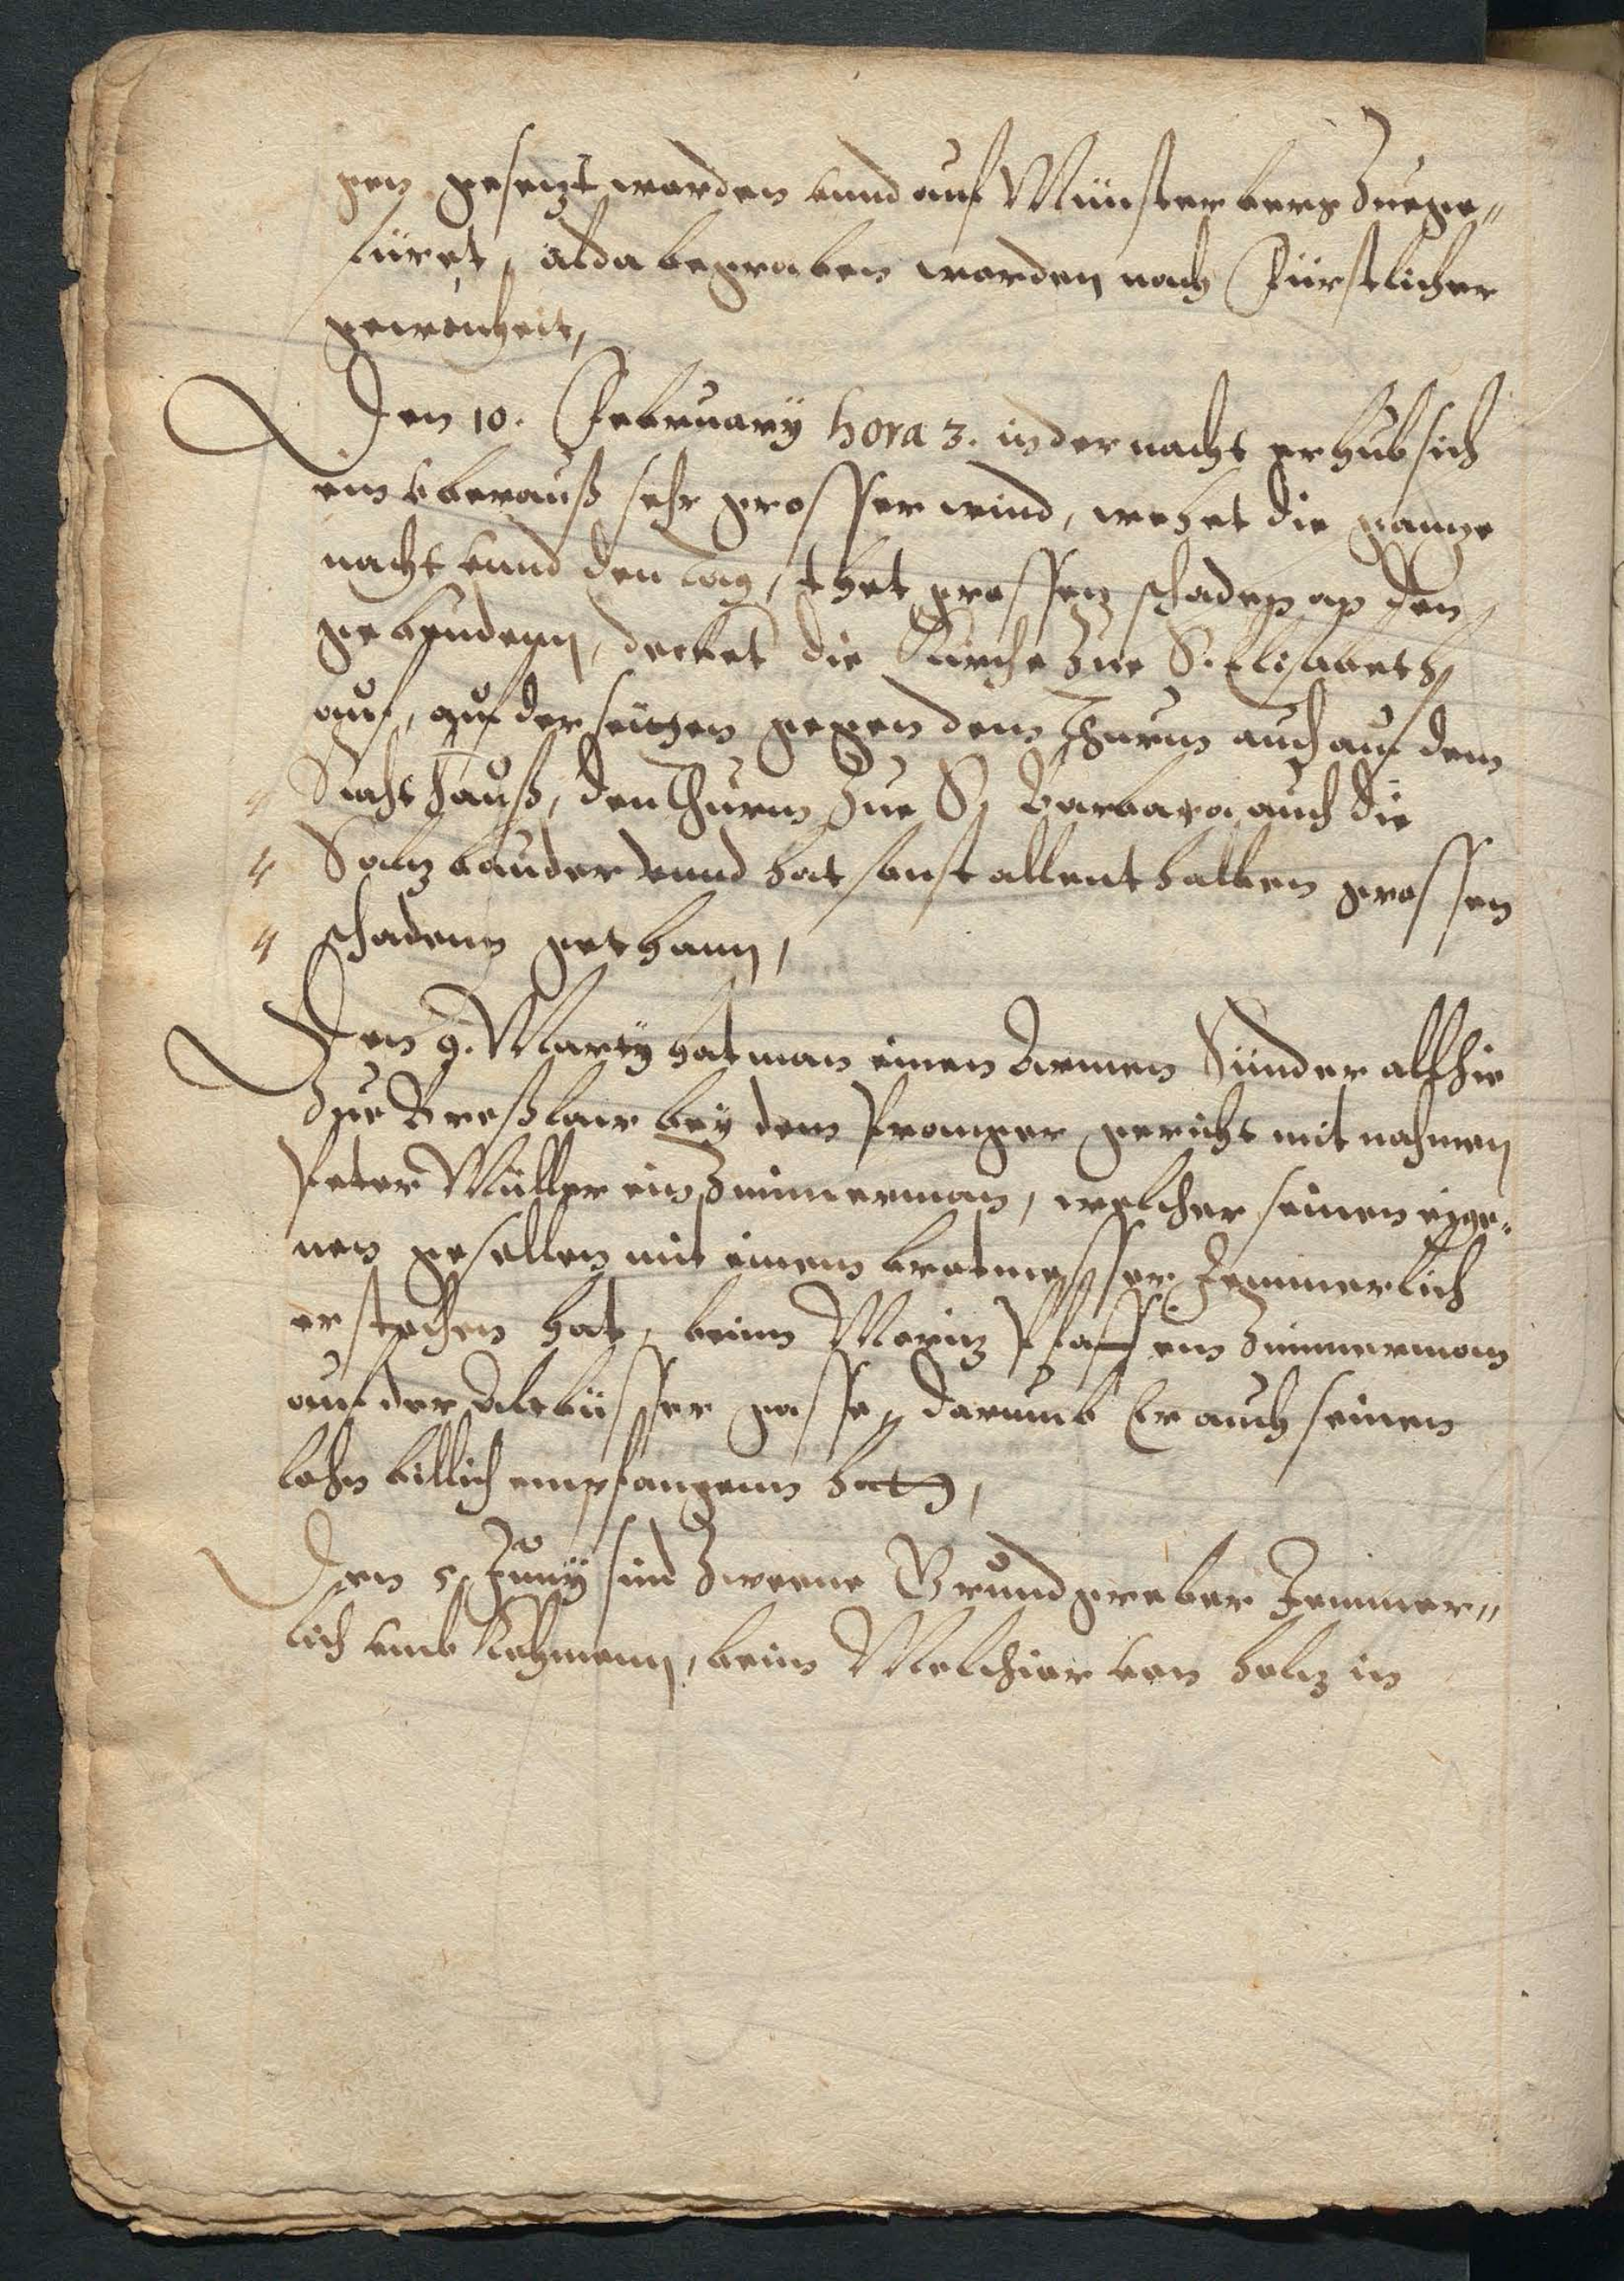 gen gesetzt worden vnnd auf Münsterberg Zuege„
füret, alda begraben worden nach Fürstlicher
gewonheit,
Den 10. February hora 3. in der nacht erhub sich
ein vberauß sehr grosser wind, wehet die gantze
nacht vnnd den tag, thet grossen schaden an den
gebeuden, decket die Kirche zue S. Elisabeth
auf, auf der seitten gegen dem Thurm auch auf dem
Rathhauß, den Thurm zue S. Barbara, auch die
Saltzbauder vnnd hat sonst allenthalben grossen
schadenn gethann,
Den 9. Marty hat man einen Armen Sünder allhie
Zue Breßlaw bey dem Pranger gericht mit nahmen
Peter Müller ein Zimmerman, welcher seinen eige„
nen gesellen mit einem brotmesser Jemmerlich
erstochen hat, beim Moritz Pfaffen Zimmerman
auf der Altbüsser gasse, darumb Er auch seinen
lohn billich empfangenn hat,
Den 5. Juny sind Zweene Grundgreber Jemmer„
lich vmb kohmenn, beim Melchior von holtz in